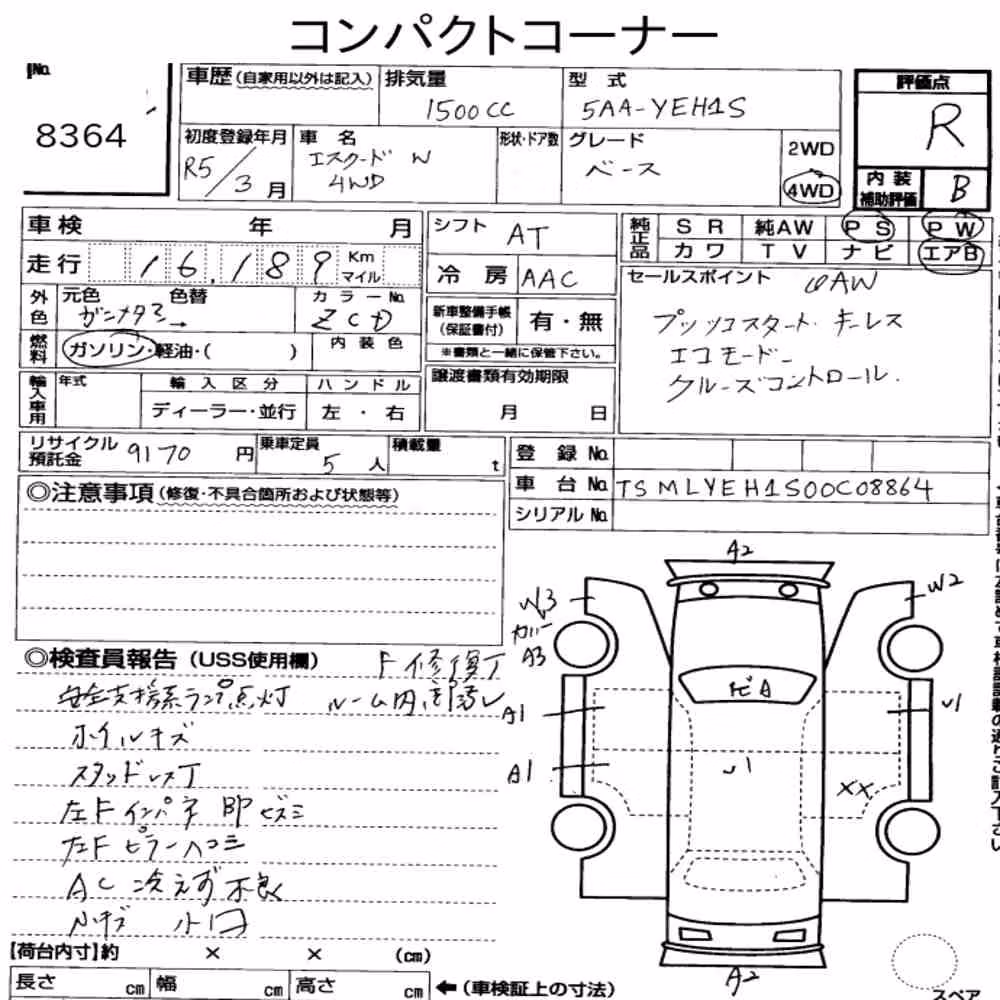 コンパクトコーナー
No.
8364
車歴(自家用以外は記入)
排気量
1500cc
型式
5AA-YEH1S
評価点
R
初度登録年月
R5/3月
車名
エスクード W
4WD
形状・ドア数
グレード
ベース
2WD
4WD
内装
補助評価
B
車検 年 月
走行 16,189 Km
マイル
シフト
AT
冷房
AAC
純正品
SR 純AW PS PW
カワ TV ナビ エアB
外色
元色 色替
ガンメタ3→
カラーNo.
ZCD
燃料
ガソリン・軽油・( )
内装色
新車整備手帳
(保証書付)
有・無
※書類と一緒に保管下さい。
セールスポイント
プッシュスタート・キーレス
エコモード
クルーズコントロール.
輸入車用
年式
輸入区分
ディーラー・並行
ハンドル
左・右
譲渡書類有効期限
月 日
リサイクル
預託金
9170 円
乗車定員
5人
積載量
t
登録No.
車台No. TSMLYEH1S00C08864
シリアルNo.
◎注意事項(修復・不具合箇所および状態等)
◎検査員報告(USS使用欄)
F修復了
安全支援系ランプ点灯
ホイルキズ
スタッドレス了
左Fインパネ部ヒズミ
左Fピラーハコミ
AC冷えず不良
小キズ 小凹
A2
W3
カバー
A3
W2
ヒビA
A1
U1
A1
U1
XX
A2
【荷台内寸】約 × × (cm)
長さ cm 幅 cm 高さ cm
←(車検証上の寸法)
スペア